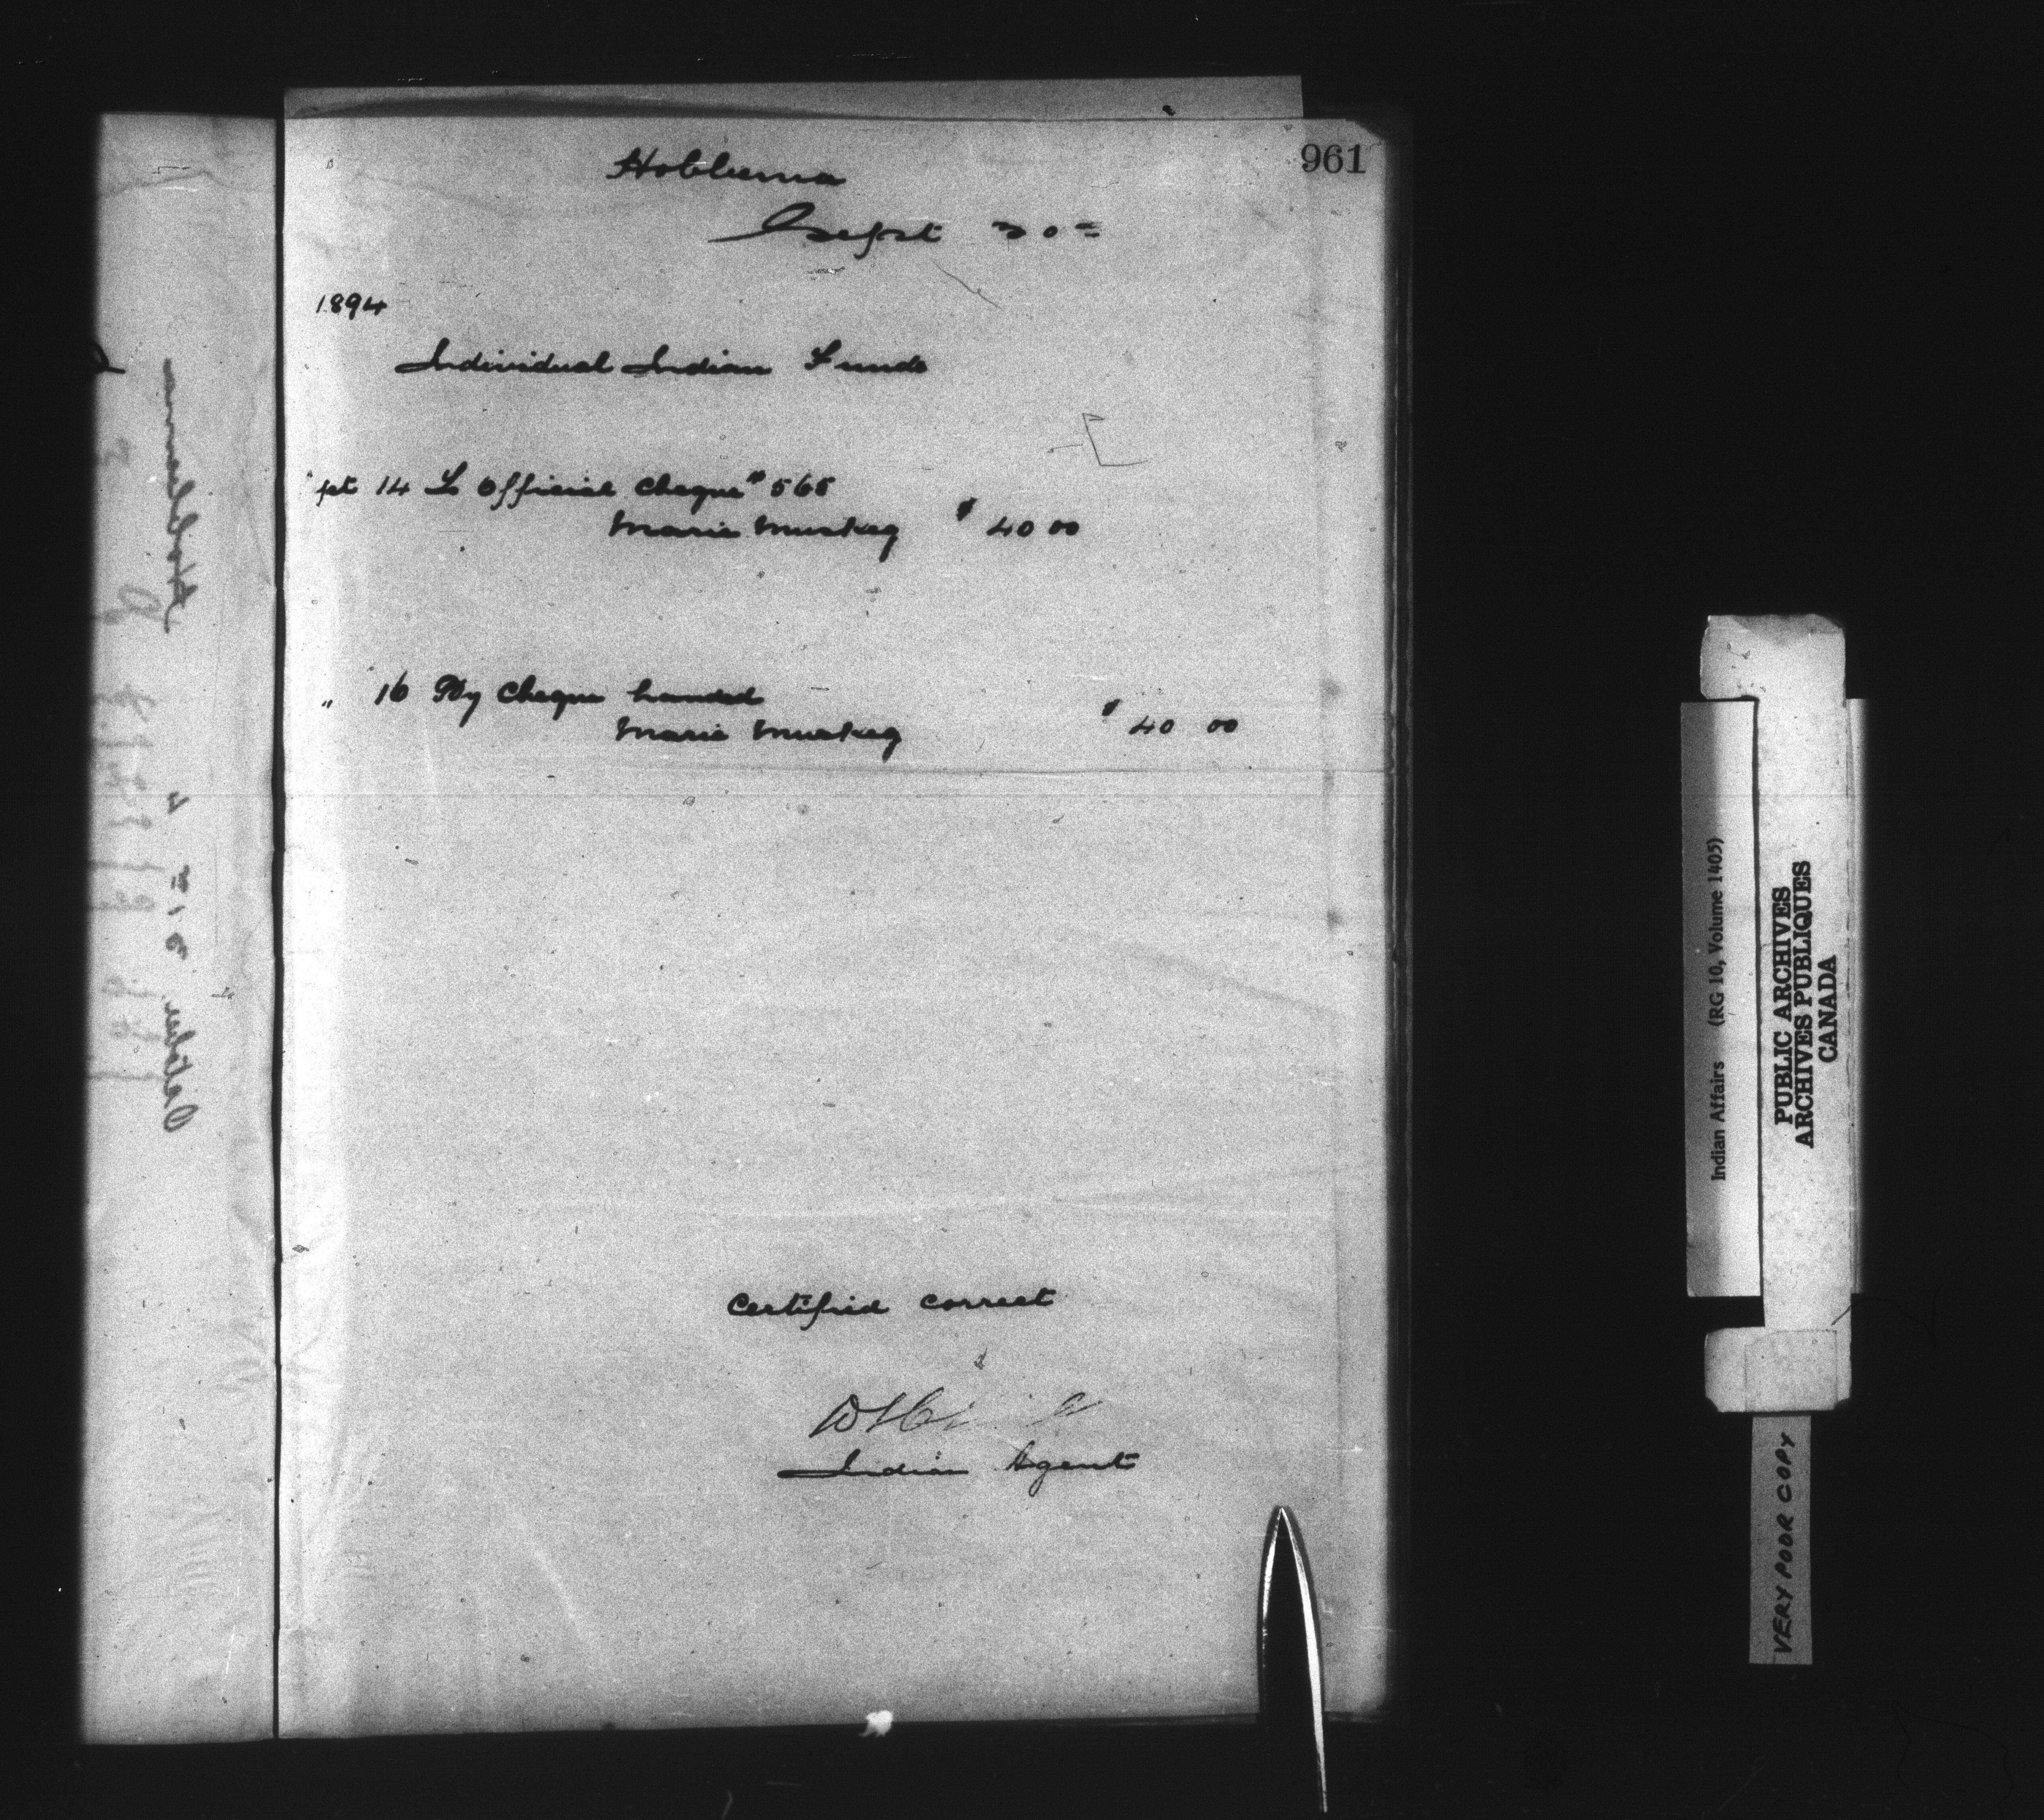 961
Hobbema
Sept 30th
1894
Individual Indian Funds
pt 14 To Official Cheque # 565
Marie Muskeg $ 40 00
" 16 By Cheque handed
Marie Muskeg $ 40 00
Certified Correct
Indian Agent
Hobbema
October 31st
Indian Affairs (RG 10, Volume 1405)
PUBLIC ARCHIVES
ARCHIVES PUBLIQUES
CANADA
VERY POOR COPY